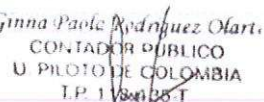 Ginna Paole Rodriguez Olarte
CONTADOR PUBLICO
U. PILOTO DE COLOMBIA
T.P.